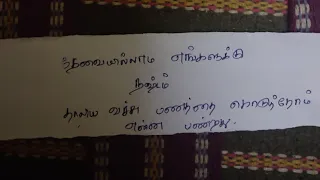 தேவையில்லாம எங்களுக்கு
நஷ்டம்
தாலிய வச்சு பணத்தை கொடுத்தோம்
என்ன பண்றது